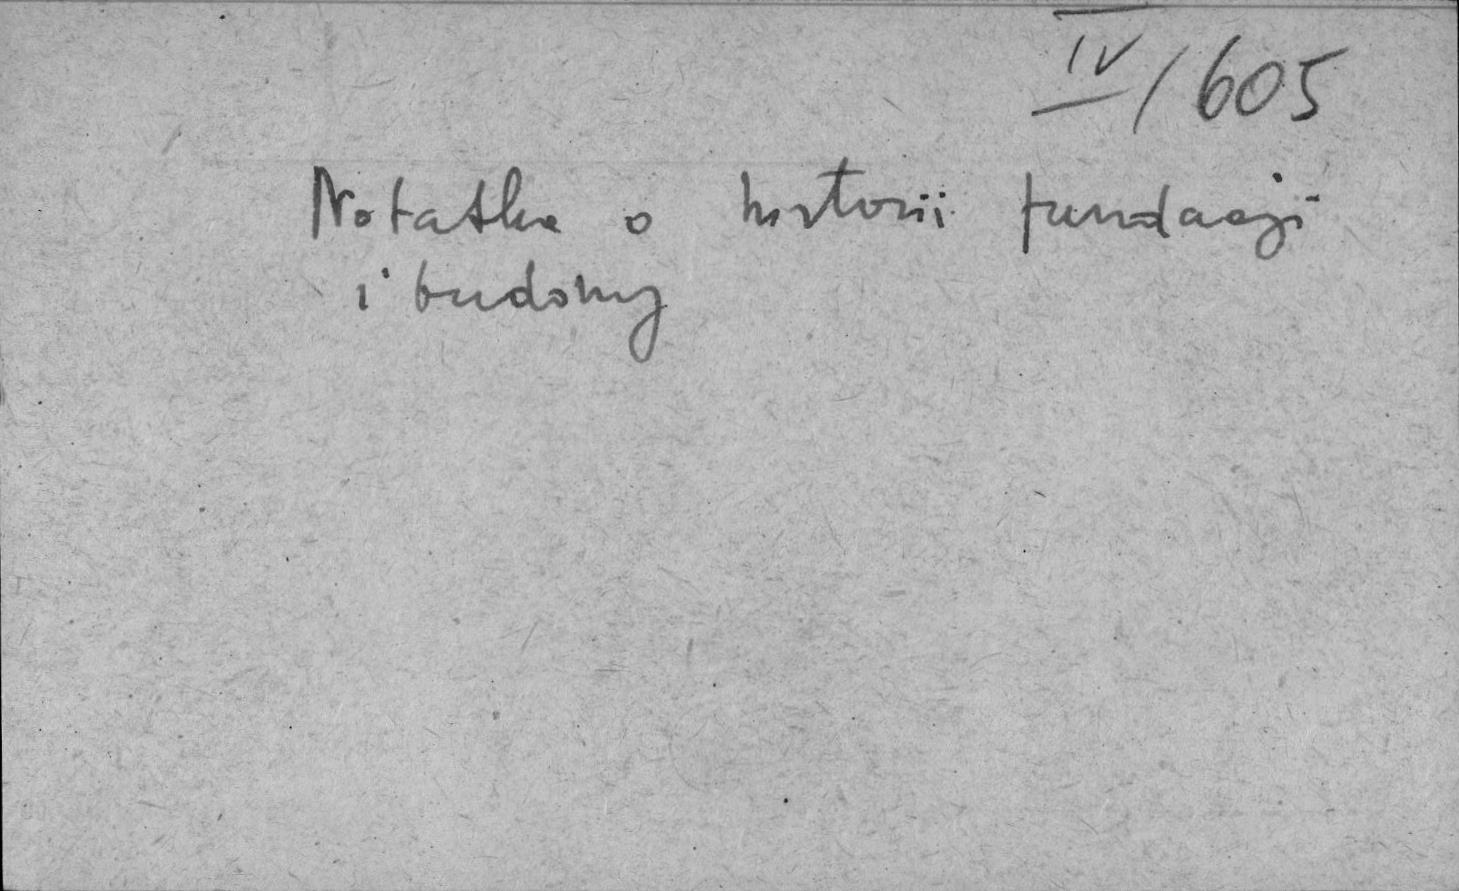 IV/605
Notatka o historii fundacji
i budowy